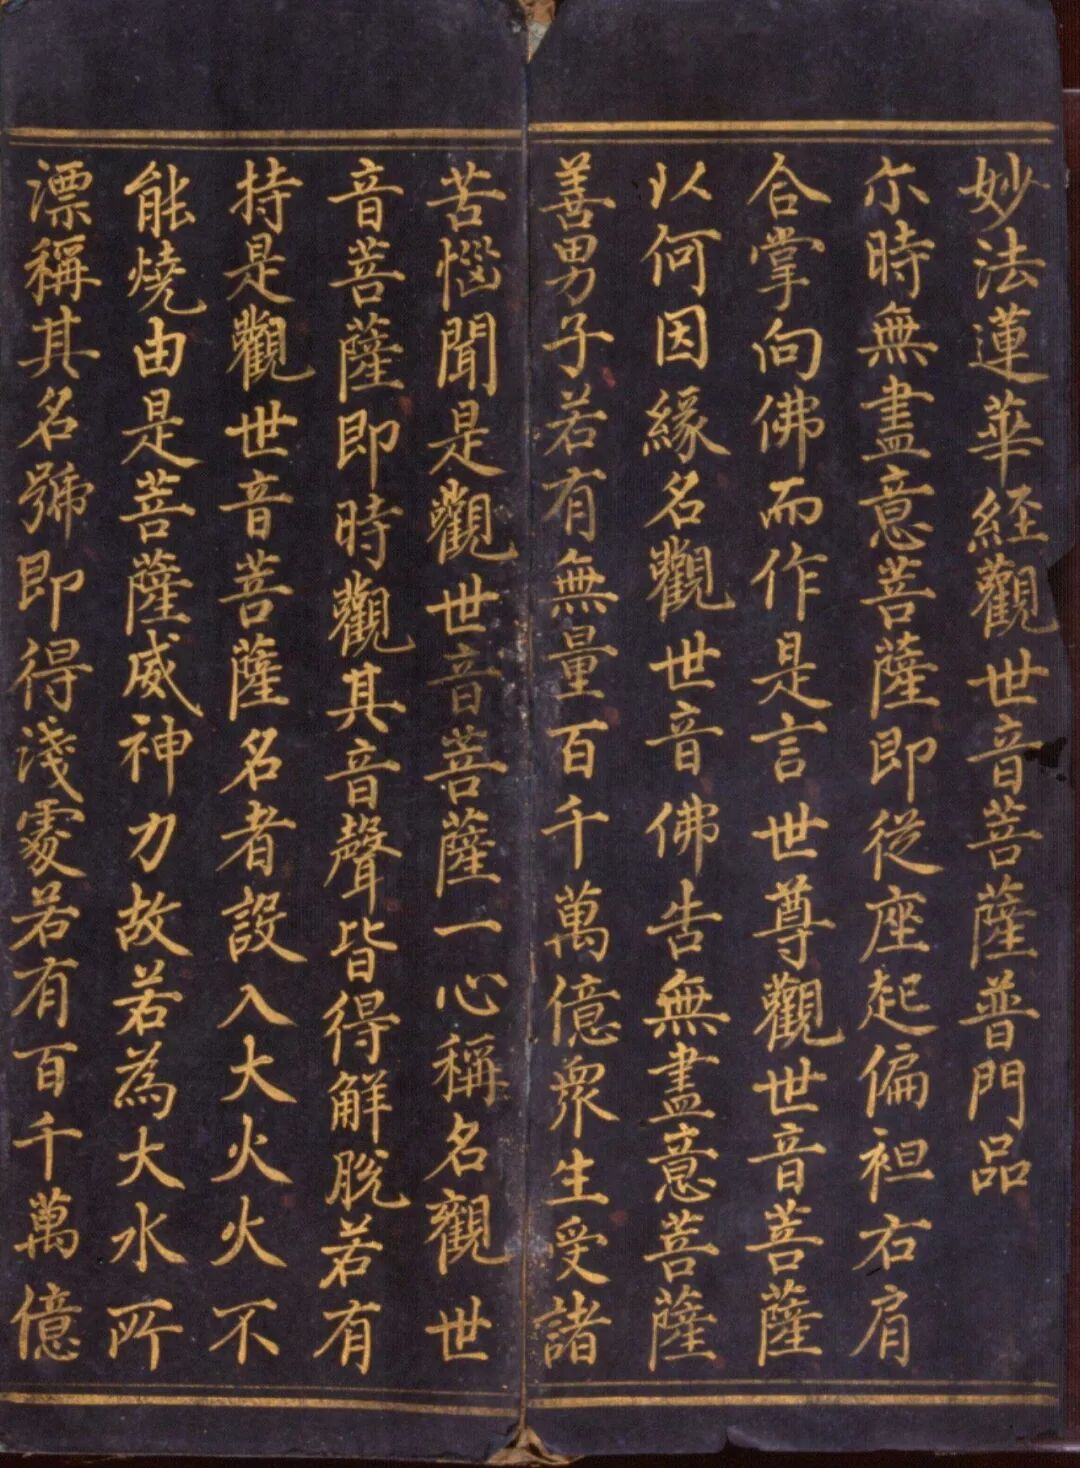 妙法蓮華経觀世音菩薩普門品
尓時無盡意菩薩即從座起偏袒右肩
合掌向佛而作是言世尊觀世音菩薩
以何因緣名觀世音佛告無盡意菩薩
善男子若有無量百千萬億衆生受諸
苦惱聞是觀世音菩薩一心稱名觀世
音菩薩即時觀其音聲皆得解脫若有
持是觀世音菩薩名者設入大火火不
能燒由是菩薩威神力故若為大水所
漂稱其名號即得淺處若有百千萬億